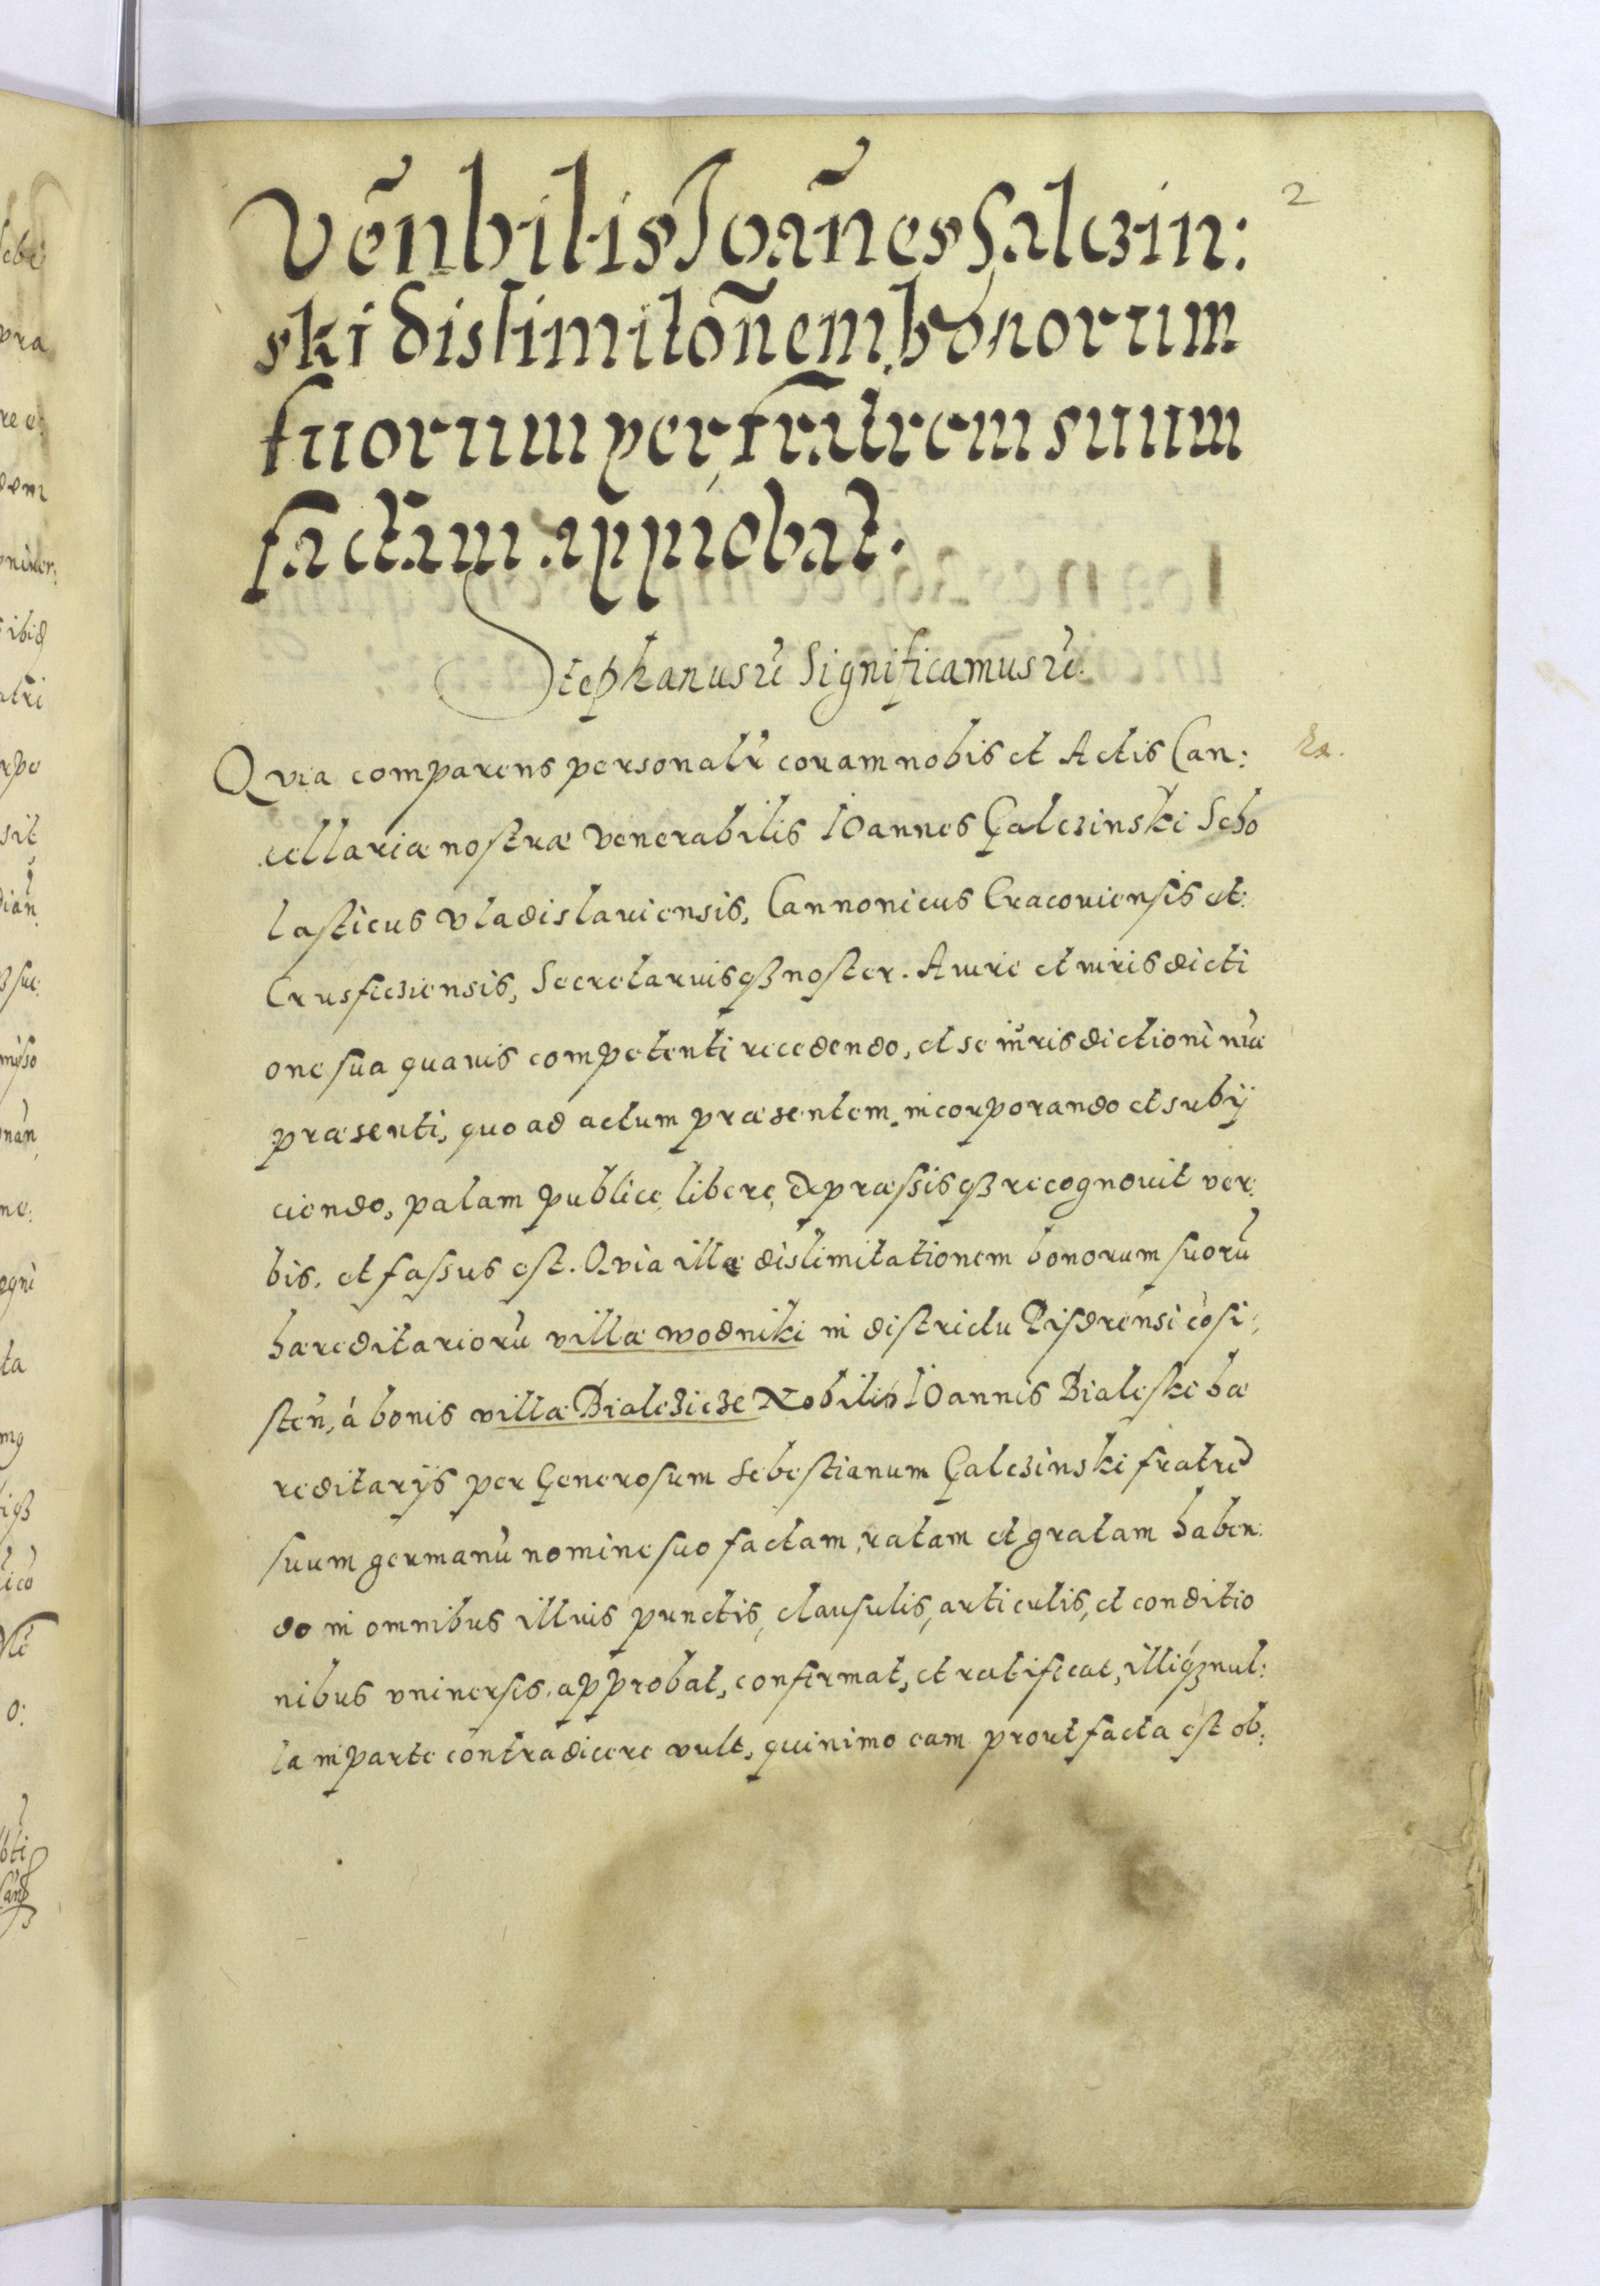 2
Vẽnbilis Joãnes Galczin:
ski dislimitõnem bonorum
suorum per fratrem suum
factam approbat.
Stephanus rc̃ Significamus rc̃.
Quia comparens personalr̃ coram nobis et Actis Can:
cellariæ nostræ venerabilis Ioannes Galczinski Scho
lasticus vladislauiensis, Cannonicus Cracouiensis et
Crusficziensis, Secretariusqȝ noster. A iure et iurisdicti
one sua quauis competenti recedendo, et se iurisdictioni nr̃æ
præsenti, quo ad actum præsentem, incorporando et subij
ciendo, palam publice, libere, expræssisqȝ recognouit ver:
bis, et fassus est. Quia illæ dislimitationem bonorum suorũ
hæreditariorũ villæ wodniki in districtu Pisdrensi cõsi:
steñ, à bonis villæ Bialeziczse Nobilis Ioannis Bialeski hæ
reditarijs per Generosum Sebestianum Galczinski fratrẽ
suum germanũ nomine suo factam, ratam et gratam haben:
do in omnibus illius punctis, clausulis, articulis, et conditio
nibus vniuersis, approbat, confirmat, et ratificat, illiqȝ nul:
la in parte contradicere vult, quinimo eam prout facta est ob: